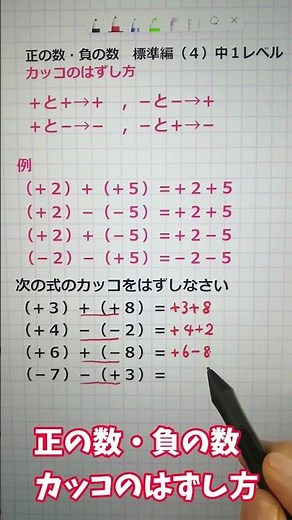 正の数・負の数　標準編（４）中１レベル
カッコのはずし方
＋と＋→＋　，－と－→＋
＋と－→－　，－と＋→－
例
（＋２）＋（＋５）＝＋２＋５
（＋２）－（－５）＝＋２＋５
（＋２）＋（－５）＝＋２－５
（－２）－（＋５）＝－２－５
次の式のカッコをはずしなさい
（＋３）＋（＋８）＝+3+8
（＋４）－（－２）＝+4+2
（＋６）＋（－８）＝+6-8
（－７）－（＋３）＝
正の数・負の数
カッコのはずし方